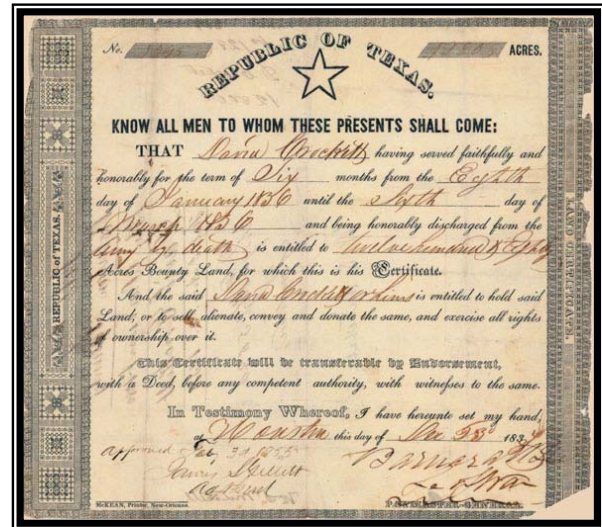 No. ACRES.
REPUBLIC OF TEXAS.
KNOW ALL MEN TO WHOM THESE PRESENTS SHALL COME:
THAT David Crockett having served faithfully and
honorably for the term of Six months from the Eighth
day of January 1836 until the Sixth day of
March 1836 and being honorably discharged from the
army by death is entitled to twelve hundred & Eighty
Acres Bounty Land, for which this is his Certificate.
And the said David Crockett or heirs is entitled to hold said
Land, or to sell, alienate, convey and donate the same, and exercise all rights
of ownership over it.
This Certificate will be transferable by Endorsement,
with a Deed, before any competent authority, with witnesses to the same.
In Testimony Whereof, I have hereunto set my hand,
at Houston this day of 183
approved
McKEAN, Printer, New-Orleans.
REPUBLIC of TEXAS.
LAND CERTIFICATE.